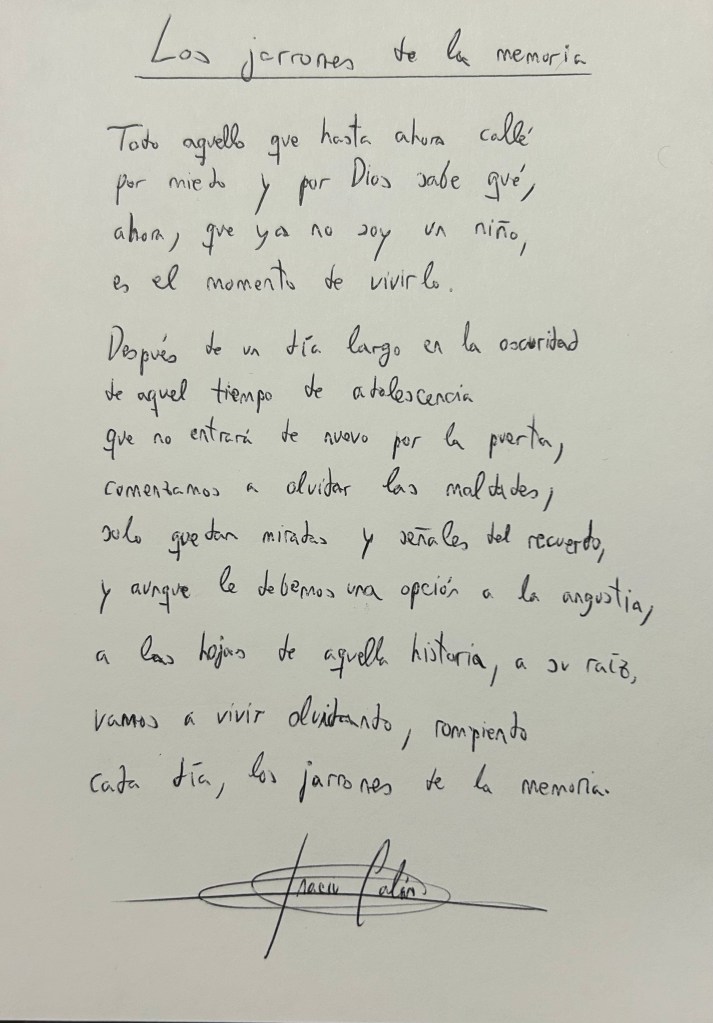 Los jarrones de la memoria
Todo aquello que hasta ahora callé
por miedo y por Dios sabe qué,
ahora, que ya no soy un niño,
es el momento de vivirlo.
Después de un día largo en la oscuridad
de aquel tiempo de adolescencia
que no entrará de nuevo por la puerta,
comenzamos a olvidar las maldades;
solo quedan miradas y señales del recuerdo,
y aunque le debemos una opción a la angustia,
a las hojas de aquella historia, a su raíz,
vamos a vivir olvidando, rompiendo
cada día, los jarrones de la memoria.